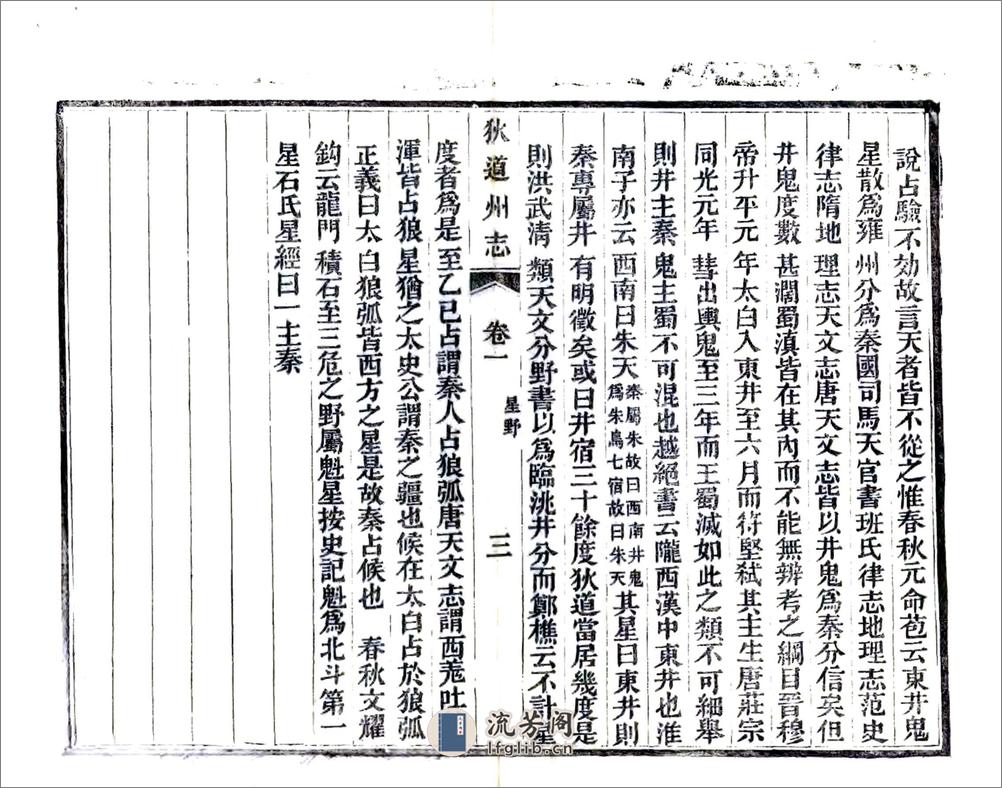 說占驗不効故言天者皆不從之惟春秋元命苞云東井鬼
星散爲雍州分爲秦國司馬天官書班氏律志地理志范史
律志隋地理志天文志唐天文志皆以井鬼爲秦分信矣但
井鬼度數甚濶蜀滇皆在其內而不能無辨考之綱目晉穆
帝升平元年太白入東井至六月而符堅弑其主生唐莊宗
同光元年彗出輿鬼至三年而王蜀滅如此之類不可細舉
則井主秦鬼主蜀不可混也越絕書云隴西漢中東井也淮
南子亦云西南曰朱天秦屬朱故曰西南井鬼爲朱鳥七宿故曰朱天其星曰東井則
秦專屬井有明徵矣或曰井宿三十餘度狄道當居幾度是
則洪武清類天文分野書以爲臨洮井分而鄭樵云不計星
狄道州志
卷一
星野
三
度者爲是至乙巳占謂秦人占狼弧唐天文志謂西羗吐
渾皆占狼星猶之太史公謂秦之疆也候在太白占於狼弧
正義曰太白狼弧皆西方之星是故秦占候也 春秋文耀
鈎云龍門積石至三危之野屬魁星按史記魁爲北斗第一
星石氏星經曰一主秦
流芳阁
lfglib.cn